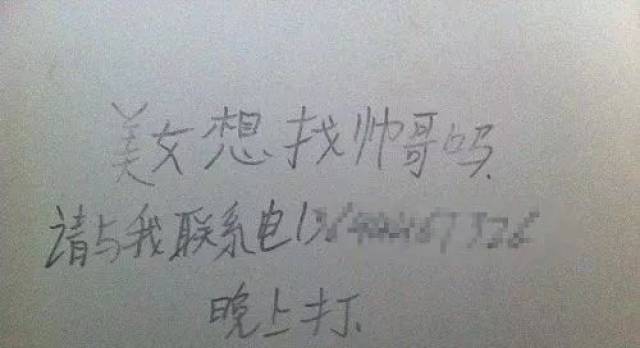 美女想找帅哥吗
请与我联系电13
晚上打